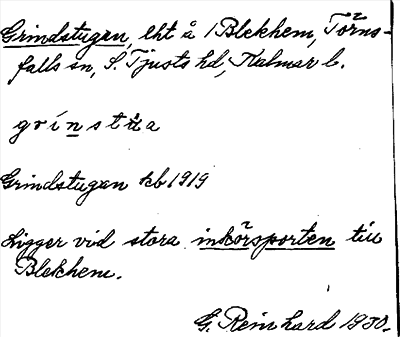 Grindstugan, lht å 1 Blekhem, Törns-
falls sn, S. Tjusts hd, Kalmar l.
grinstua
Grindstugan kb 1919
Ligger vid stora inkörsporten till
Blekhem.
G. Reinhard 1930.